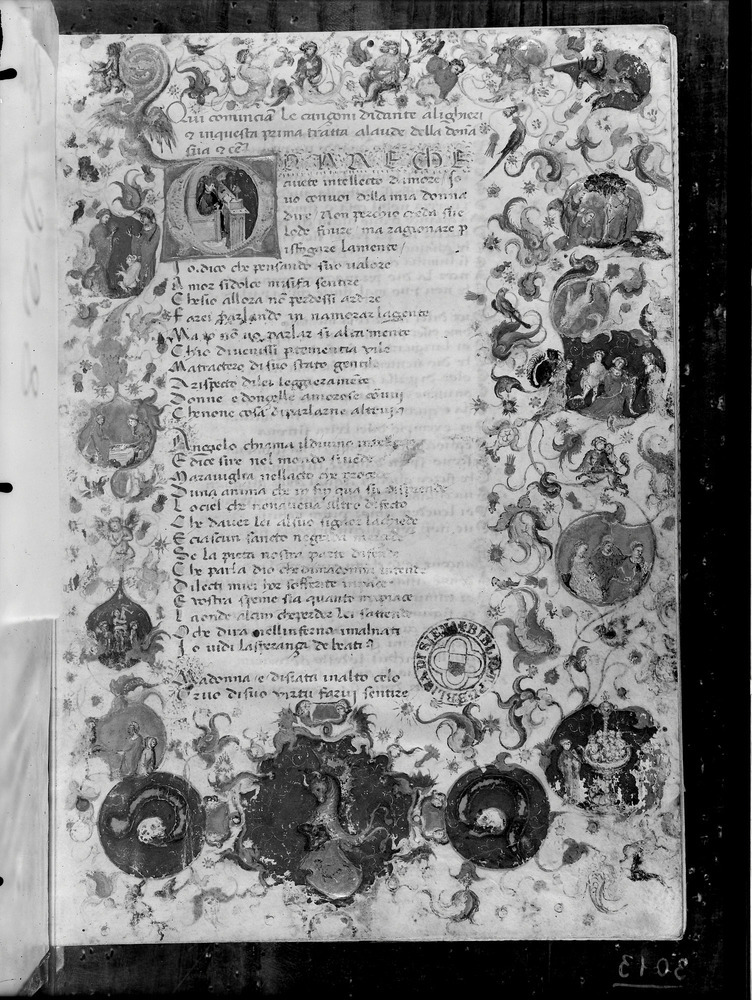 Qui cominciã Le cançoni didante alighieri
& inquesta prima tratta alaude della dona
sua & cet
D O N N E C H E
avete intellecto damore / Io
vo convoi della mia donna
dire / Non perchio creda sue
lode finire / ma ragionare p
isfogare Lamente /
Io dico che pensando suo valore
Amor sidolce misifa sentire
Chesio allora nõ perdessi ardire
Farei parlando in namorar lagente
parlar si altamente
Chio divenissi vile
Matractero disuo stato gentile
A rispecto dilei leggieramente
Donne e dongelle amorose convui
Chenone cosa diparlarne altrui
Angelo chiama ildivino
E dice sire nel mondo sivede
Maraviglia nellacto che
Duna anima che in fin qua su risprende
Lo ciel che nonaveva altro difecto
Che daver lei alsuo signor lachiede
E ciascun sancto
Se la pieta nostra parte difende
Che parla dio che dimadonna intende
Dilecti miei hor sofferite inpace
E vostra speme sia quanto mipiace
La onde alcun cheperder lei sattende
E che dira nellinferno
Io vidi lasperanza de beati
Madonna e disiata inalto celo
disuo virtu farvi sentire
BIBLIOT PUBBLICA DI SIENA
3013